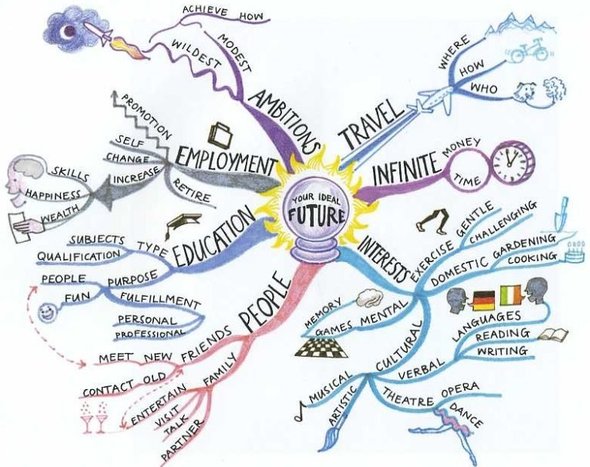 YOUR IDEAL
FUTURE
AMBITIONS
MODEST
WILDEST
ACHIEVE HOW
TRAVEL
WHERE
HOW
WHO
INFINITE
MONEY
TIME
INTERESTS
EXERCISE
GENTLE
CHALLENGING
DOMESTIC
GARDENING
COOKING
MENTAL
MEMORY
GAMES
CULTURAL
VERBAL
LANGUAGES
READING
WRITING
THEATRE
OPERA
DANCE
ARTISTIC
MUSICAL
PEOPLE
FAMILY
ENTERTAIN
VISIT
TALK
PARTNER
FRIENDS
MEET NEW
CONTACT OLD
EDUCATION
TYPE
SUBJECTS
QUALIFICATION
PURPOSE
PEOPLE
FUN
FULFILLMENT
PERSONAL
PROFESSIONAL
EMPLOYMENT
PROMOTION
SELF
CHANGE
INCREASE
SKILLS
HAPPINESS
WEALTH
RETIRE